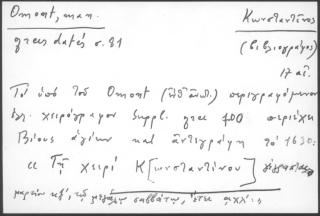 Omont, man.
Κωνσταντῖνος
grecs datés σ. 81
(βιβλιογράφος)
17 αἰ.
Τὸ ὑπὸ τοῦ Omont περιγραφόμενον
χειρόγραφον Suppl. grec 700 περιέχει
Βίους ἁγίων καὶ ἀντιγράφη τὸ 1630:
"Τῇ χειρὶ Κ[ωνσταντίνου]
σαββάτῳ,